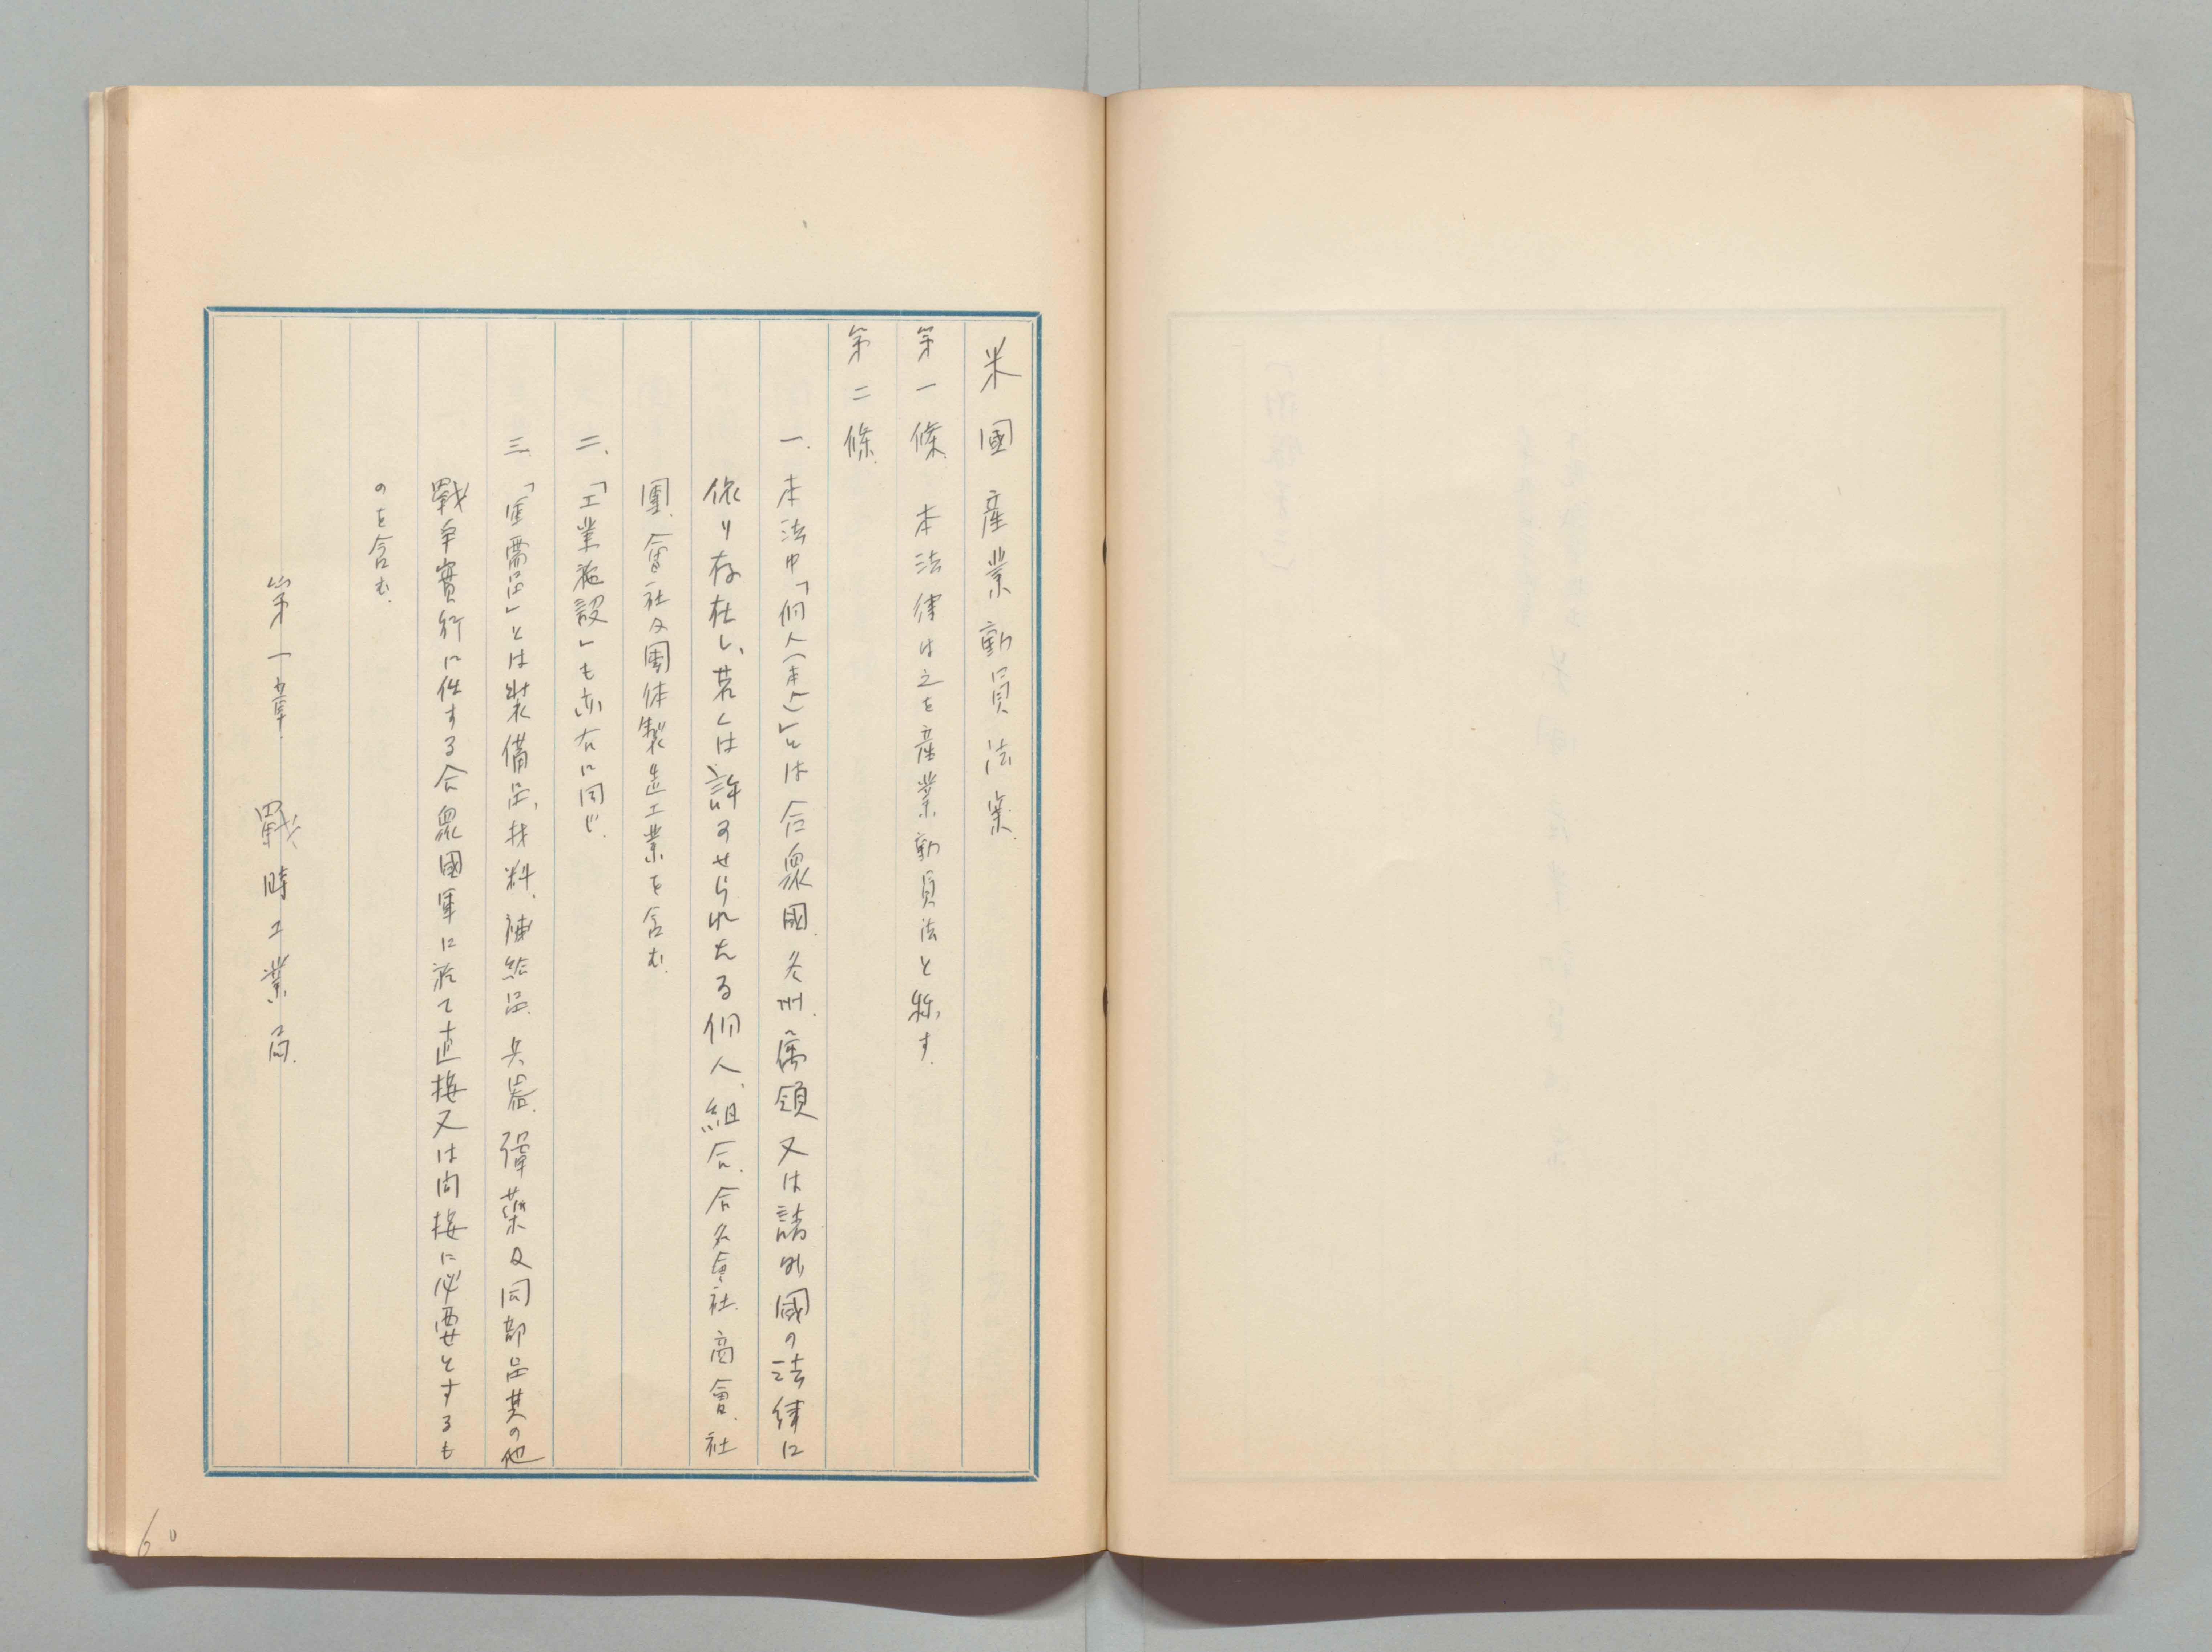 米國産業動員法案.
第一條. 本法律は之を産業動員法と称す.
第二條.
一. 本法中「個人(本人)」とは合衆國.各州.屬領又は諸外國の法律に
依り存在し、若くは許可せられたる個人、組合.合名會社.商會.社
團.會社及團体製造工業を含む.
二.「工業施設」も亦右に同じ.
三.「軍需品」とは裝備品、材料、補給品.兵器.彈藥及同部品其の他
戰爭實行に任する合衆國軍に於て直接又は间接に必要せとするも
のを含む.
第一章. 戰時工業局.
60